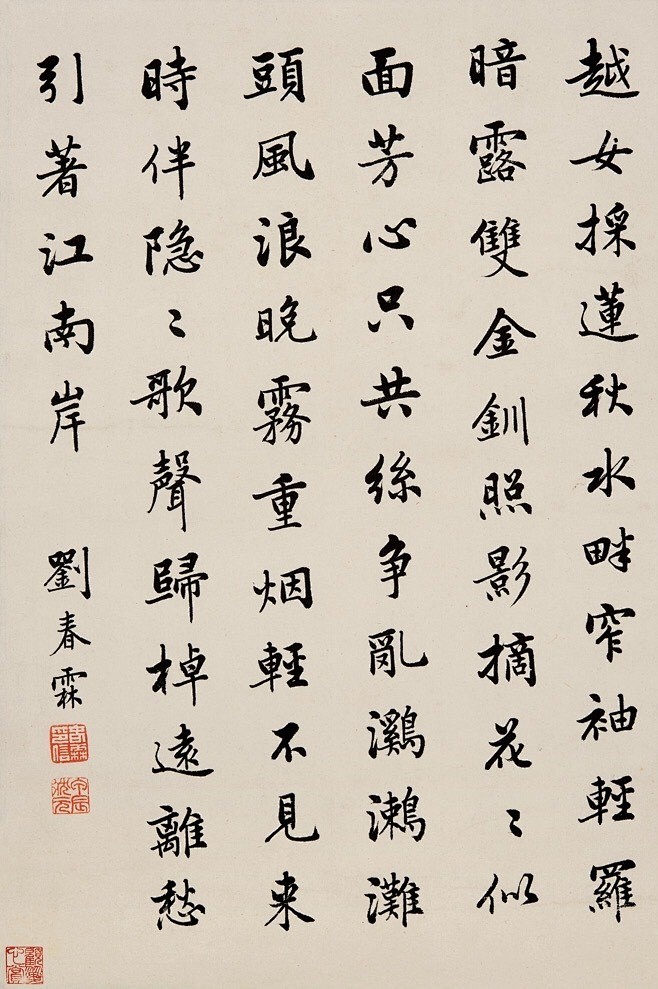 越女採蓮秋水畔窄袖輕羅
暗露雙金釧照影摘花〻似
面芳心只共絲争亂鸂鶒灘
頭風浪晚霧重烟輕不見来
時伴隐〻歌聲歸棹遠離愁
引著江南岸
劉春霖